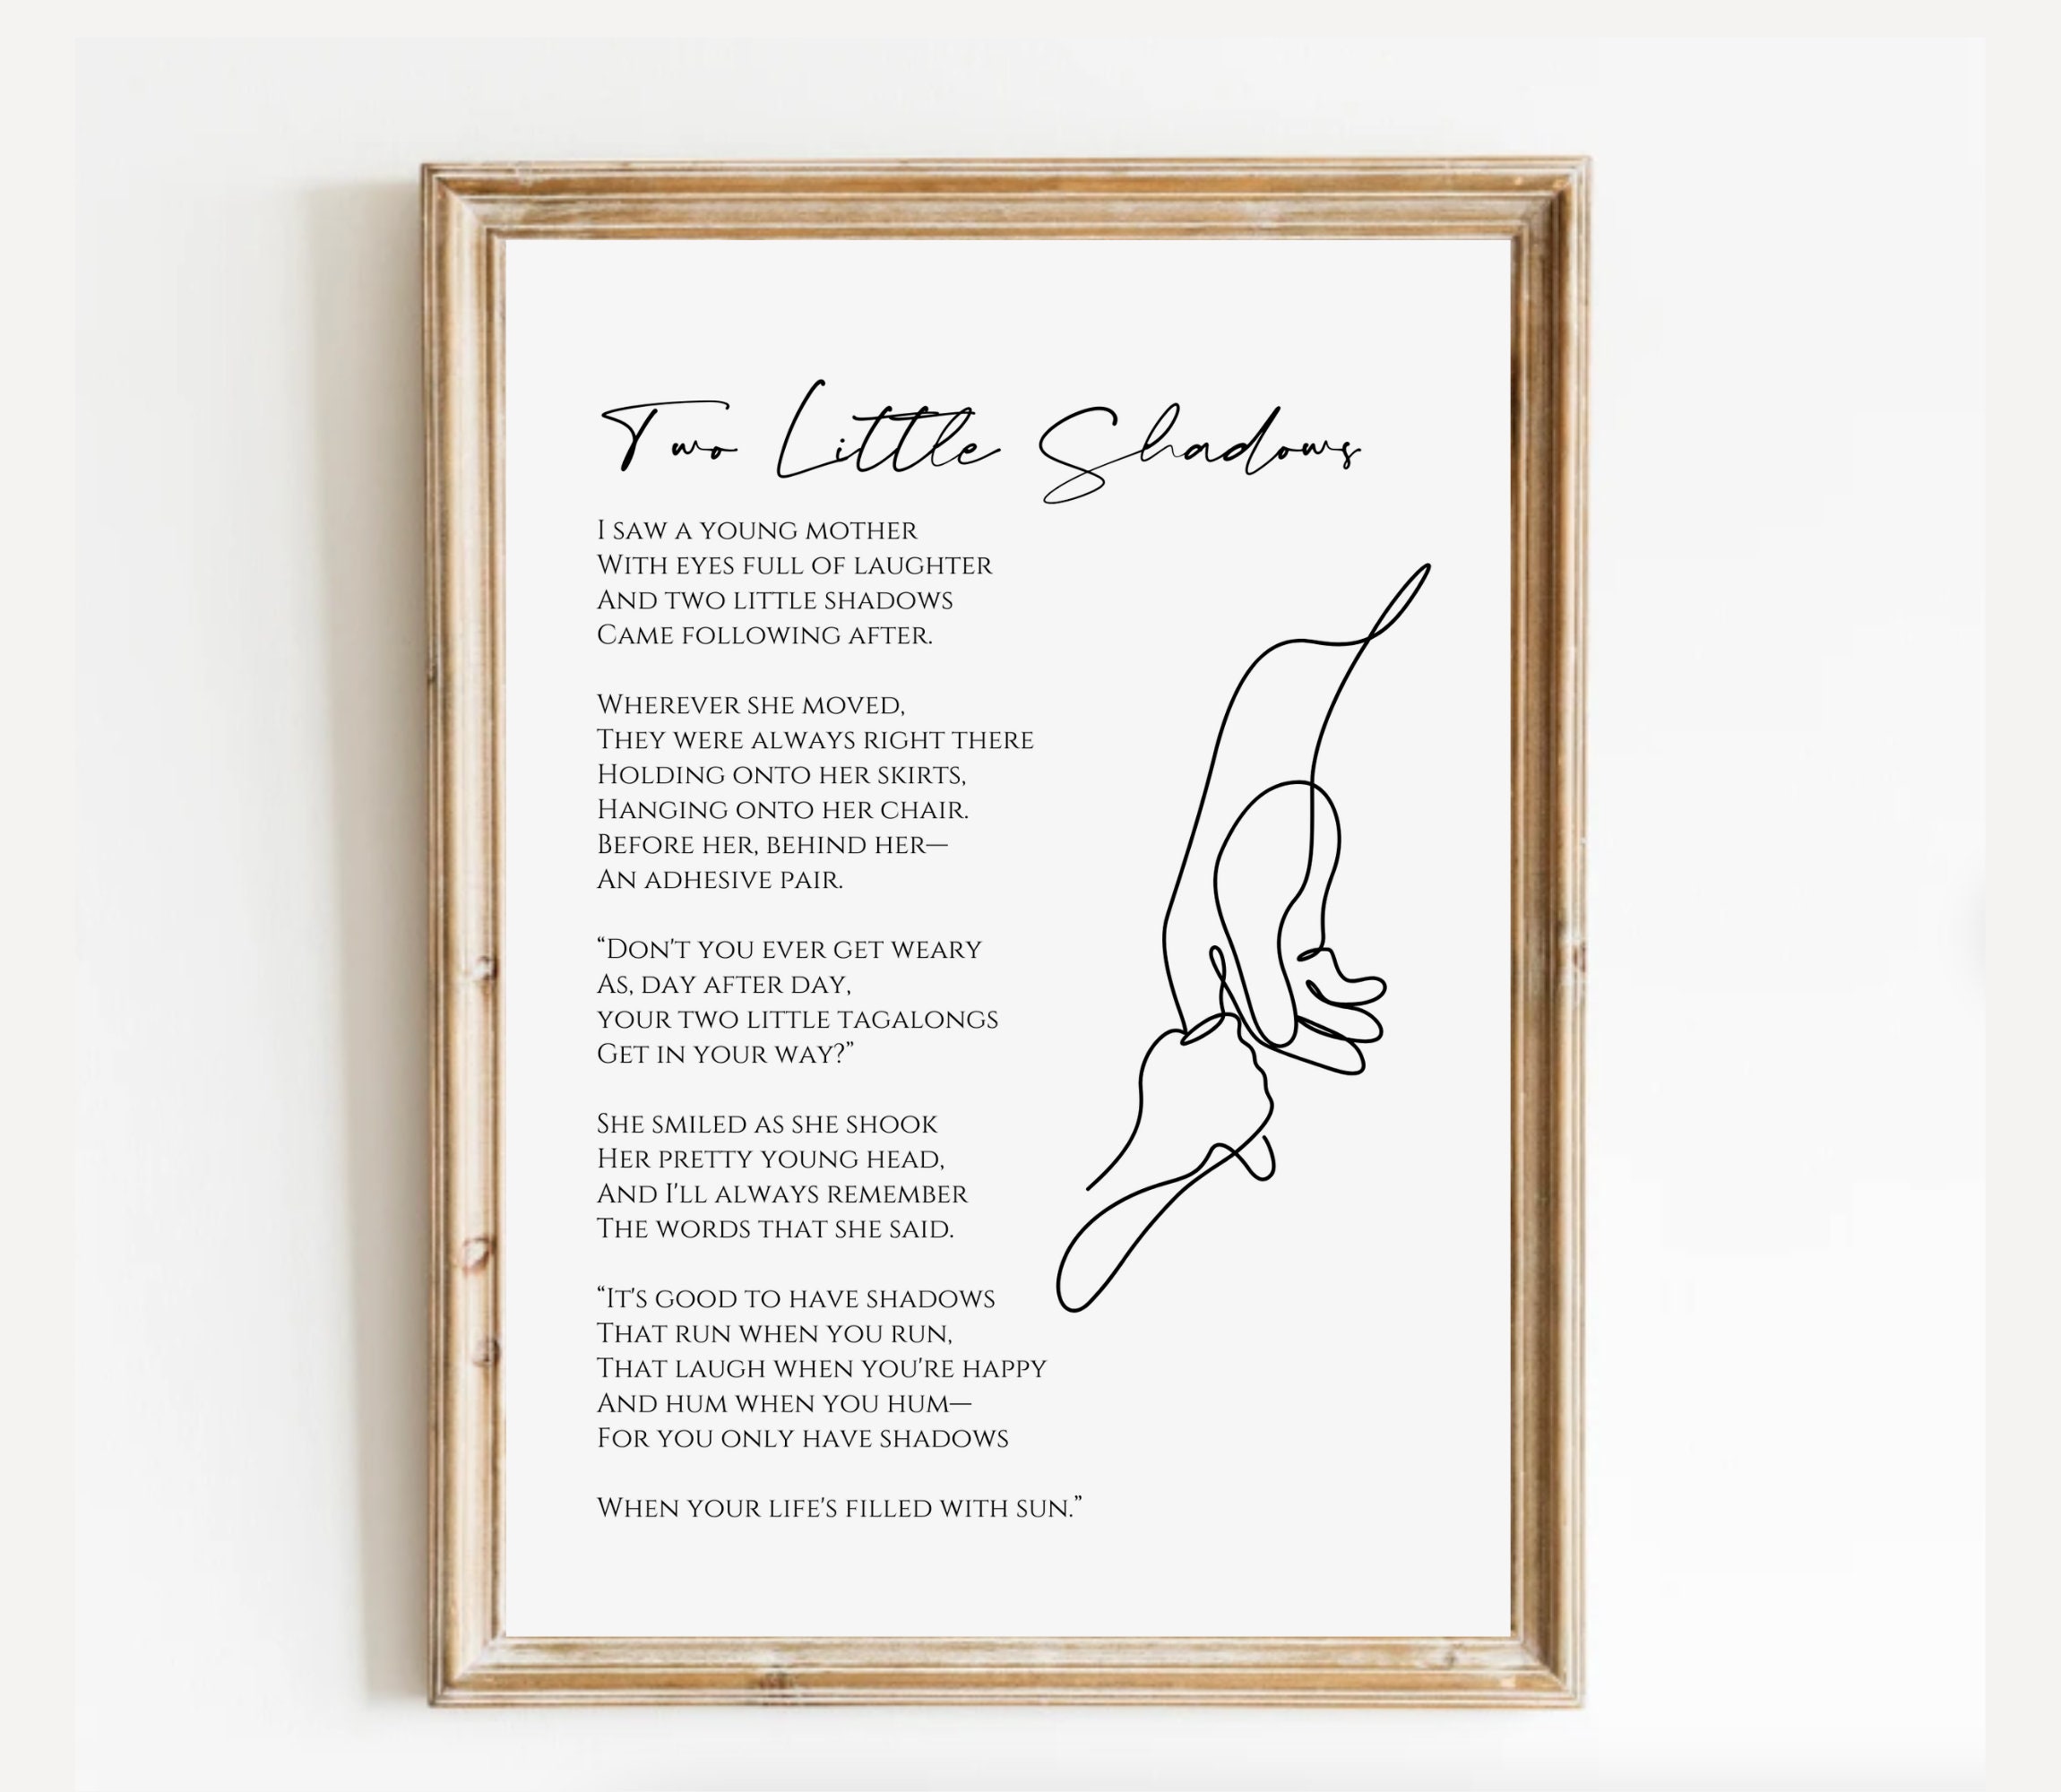 Two Little Shadows
I saw a young mother
With eyes full of laughter
And two little shadows
Came following after.
Wherever she moved,
They were always right there
Holding onto her skirts,
Hanging onto her chair.
Before her, behind her—
An adhesive pair.
“Don't you ever get weary
As, day after day,
your two little tagalongs
Get in your way?”
She smiled as she shook
Her pretty young head,
And I'll always remember
The words that she said.
“It's good to have shadows
That run when you run,
That laugh when you're happy
And hum when you hum—
For you only have shadows
When your life's filled with sun.”